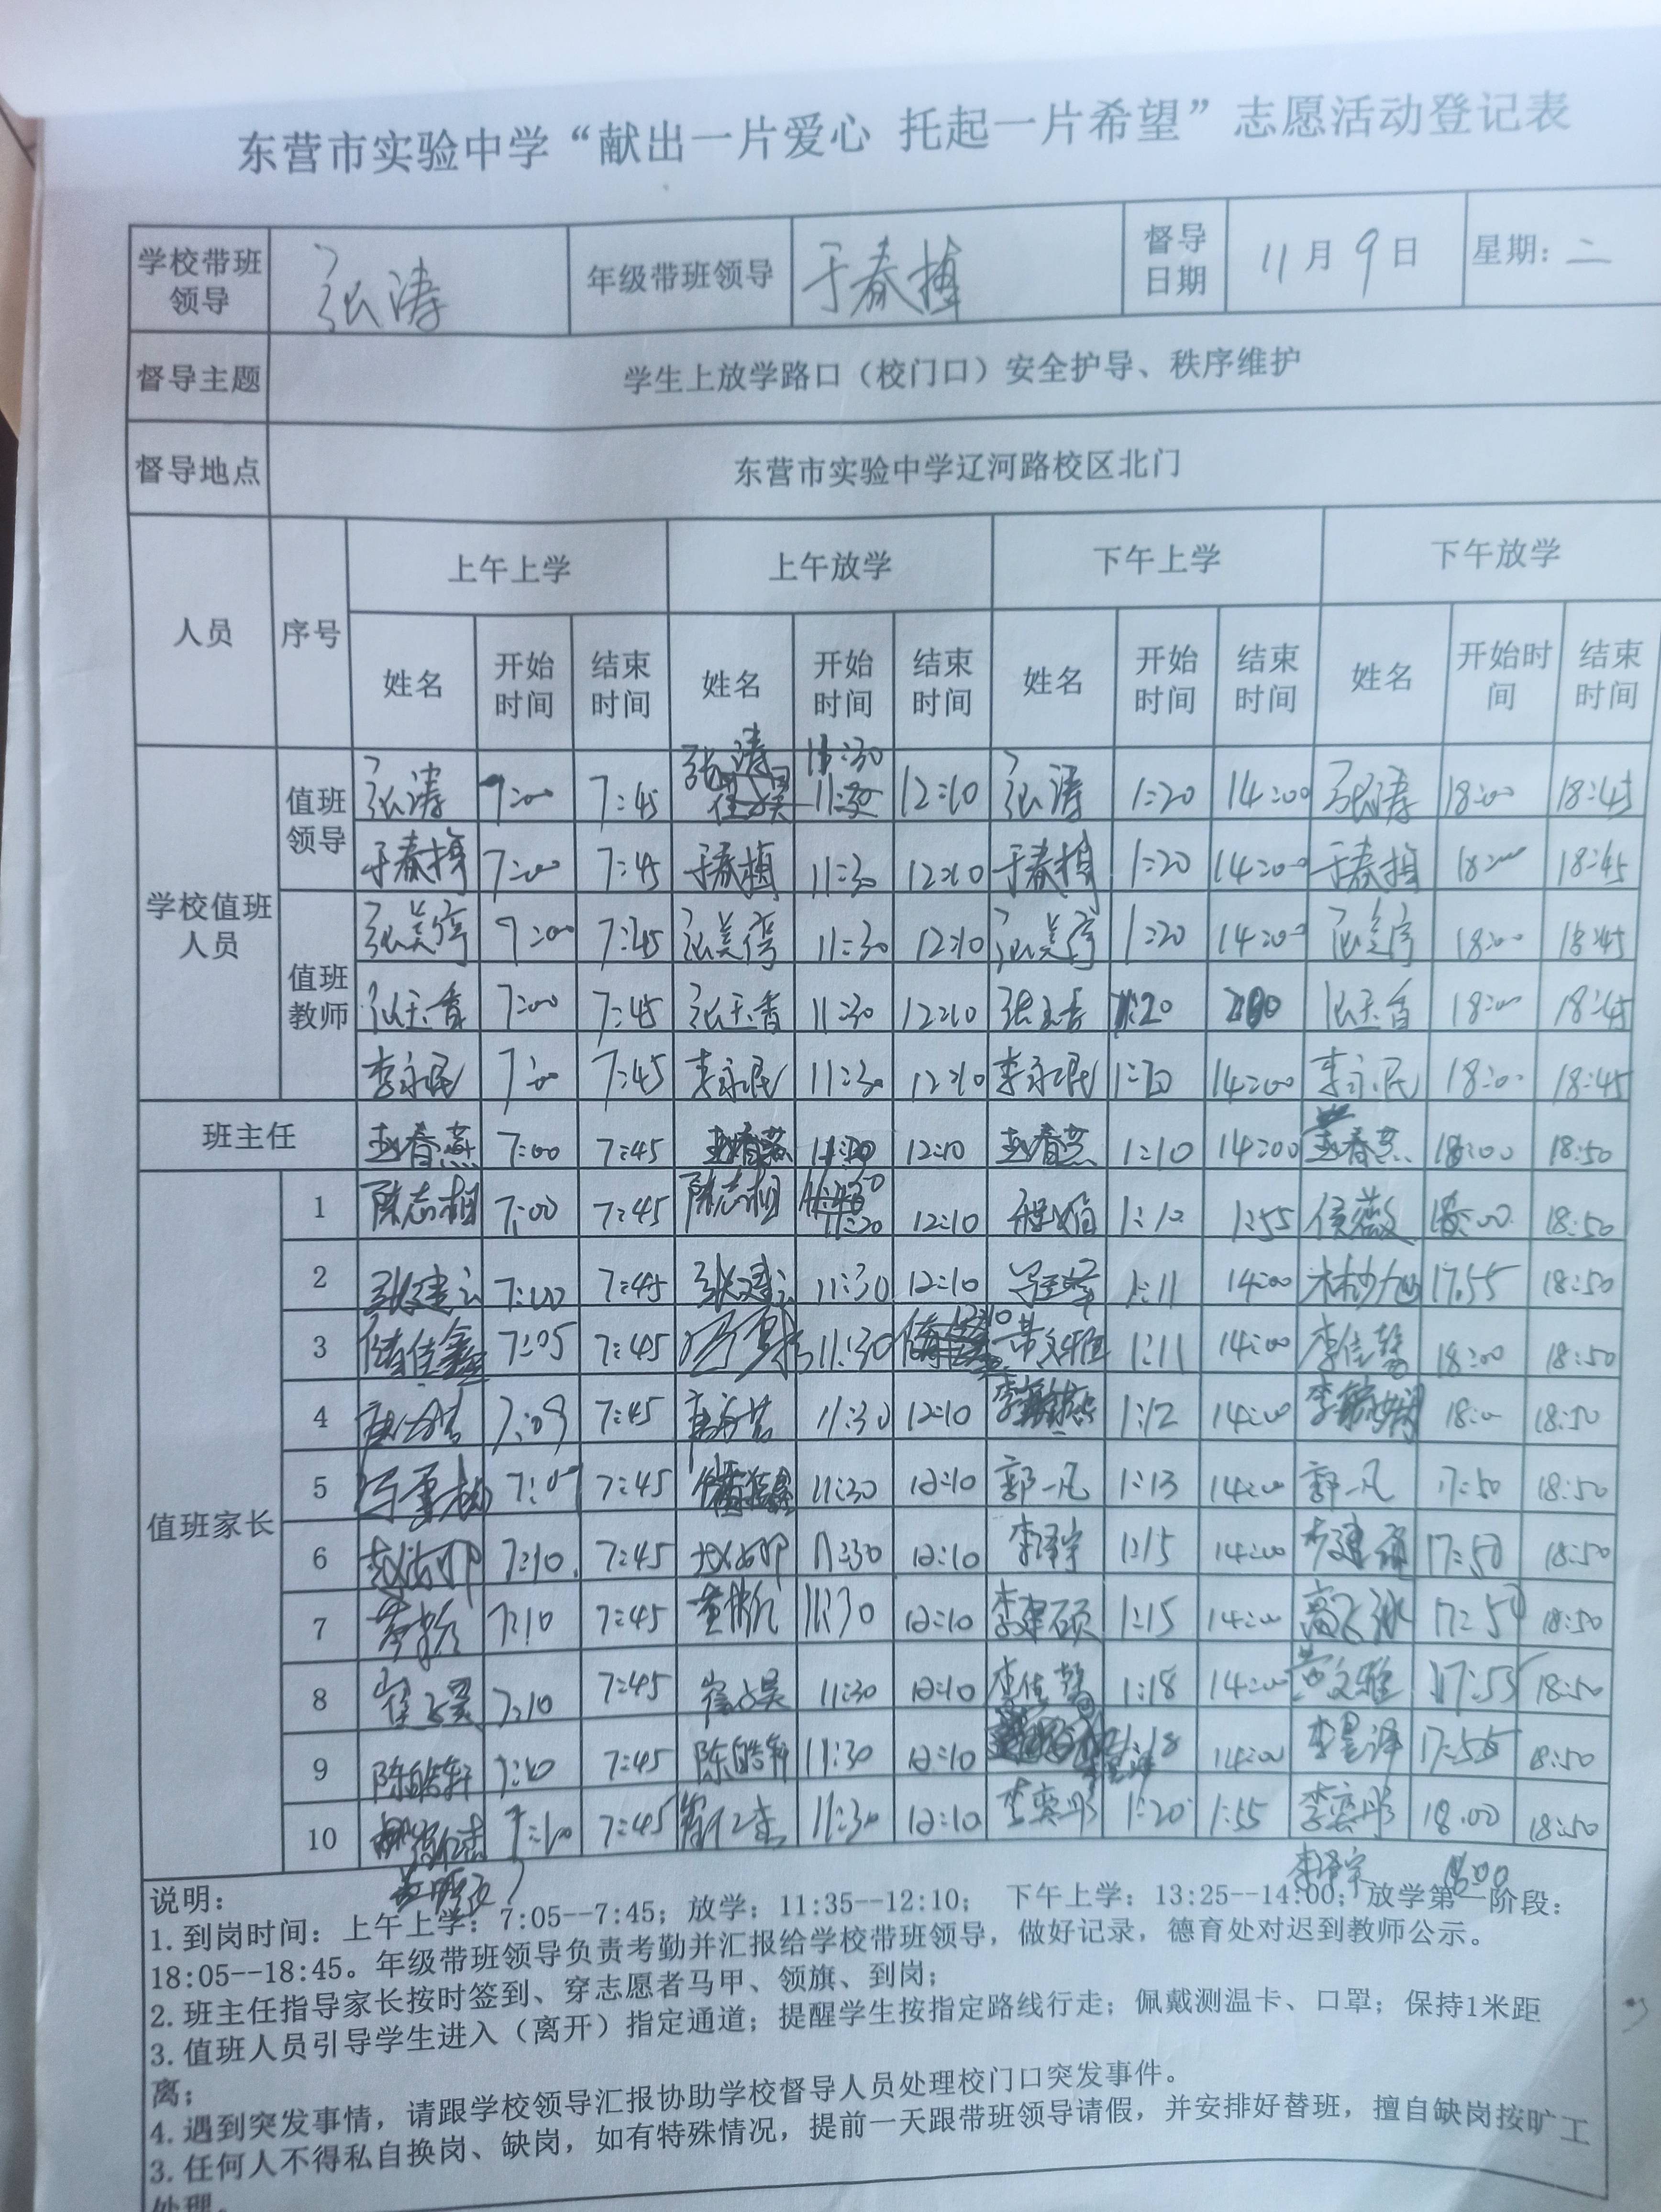 东营市实验中学“献出一片爱心 托起一片希望”志愿活动登记表
学校带班领导 张涛 年级带班领导 于春 督导日期 11月9日 星期：二
督导主题 学生上放学路口（校门口）安全护导、秩序维护
督导地点 东营市实验中学辽河路校区北门
人员 序号 上午上学 上午放学 下午上学 下午放学
姓名 开始时间 结束时间 姓名 开始时间 结束时间 姓名 开始时间 结束时间 姓名 开始时间 结束时间
学校值班人员
值班领导
张涛 7:00 7:45 张涛 11:30 12:10 张涛 1:20 14:00 张涛 18:00 18:45
于春 7:00 7:45 于春 11:30 12:10 于春 1:20 14:00 于春 18:00 18:45
值班教师
张美 7:00 7:45 张美 11:30 12:10 张美 1:20 14:00 张美 18:00 18:45
张玉香 7:00 7:45 张玉香 11:30 12:10 张玉香 1:20 张玉香 18:00 18:45
李永民 7:00 7:45 李永民 11:30 12:10 李永民 1:20 14:00 李永民 18:00 18:45
班主任 赵春燕 7:00 7:45 赵春燕 12:10 赵春燕 1:10 14:00 赵春燕 18:00 18:50
值班家长
1 陈志相 7:00 7:45 陈志相 11:20 12:10 1:10 1:55 侯薇 18:50
2 张建云 7:00 7:45 张建云 11:30 12:10 1:11 14:00 17:55 18:50
3 佳鑫 7:05 7:45 11:30 12:10 黄文雅 1:11 14:00 李佳 18:00 18:50
4 7:09 7:45 11:30 12:10 1:12 14:00 18:00 18:50
5 7:45 11:30 12:10 郭一凡 1:13 14:00 郭一凡 17:50 18:50
6 7:10 7:45 11:30 12:10 李泽宇 1:15 14:00 李建硕 17:50 18:50
7 7:10 7:45 11:30 12:10 李建硕 1:15 14:00 18:50
8 崔子昊 7:10 7:45 崔子昊 11:30 12:10 李佳 1:18 14:00 黄文雅 17:55 18:50
9 陈皓轩 7:10 7:45 陈皓轩 11:30 12:10 1:18 14:00 李昱泽 17:55 18:50
10 7:10 7:45 11:30 12:10 李奕彤 1:20 1:55 李奕彤 18:00 18:50
李泽宇 18:00
说明：
1. 到岗时间：上午上学：7:05--7:45；放学：11:35--12:10； 下午上学：13:25--14:00；放学第一阶段：
18:05--18:45。年级带班领导负责考勤并汇报给学校带班领导，做好记录，德育处对迟到教师公示。
2. 班主任指导家长按时签到、穿志愿者马甲、领旗、到岗；
3. 值班人员引导学生进入（离开）指定通道；提醒学生按指定路线行走；佩戴测温卡、口罩；保持1米距
离；
4. 遇到突发事情，请跟学校领导汇报协助学校督导人员处理校门口突发事件。
3. 任何人不得私自换岗、缺岗，如有特殊情况，提前一天跟带班领导请假，并安排好替班，擅自缺岗按旷工
处理。